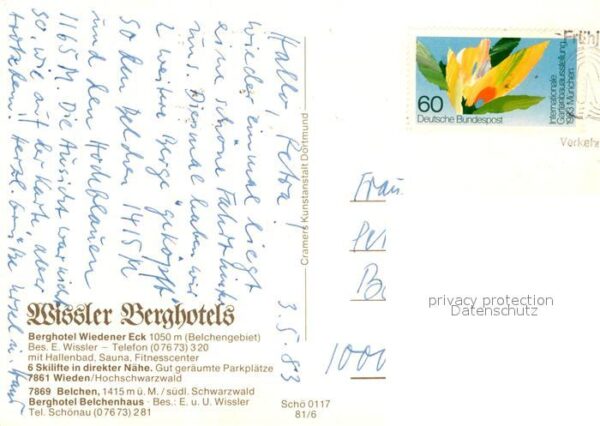 Hallo, Petra!
wieder einmal liegt
eine schöne Fahrt hinter
uns. Diesmal haben wir
2 weitere Berge "geköpft"
so den Belchen 1415 M
und den Hochblauen
1165 M. Die Aussicht war nicht
so, wie auf der Karte, aber
trotzdem. Herzl. Grüße
3.5.83
Wissler Berghotels
Berghotel Wiedener Eck 1050 m (Belchengebiet)
Bes. E. Wissler – Telefon (07673) 320
mit Hallenbad, Sauna, Fitnesscenter
6 Skilifte in direkter Nähe. Gut geräumte Parkplätze
7861 Wieden/Hochschwarzwald
7869 Belchen, 1415 m ü. M. / südl. Schwarzwald
Berghotel Belchenhaus · Bes.: E. u. U. Wissler
Tel. Schönau (07673) 281
Schö 0117
81/6
Cramers Kunstanstalt Dortmund
60
Deutsche Bundespost
Internationale
Gartenbauausstellung
1983 München
Frühj
Verkehr
Frau
Pet
1000
privacy protection
Datenschutz